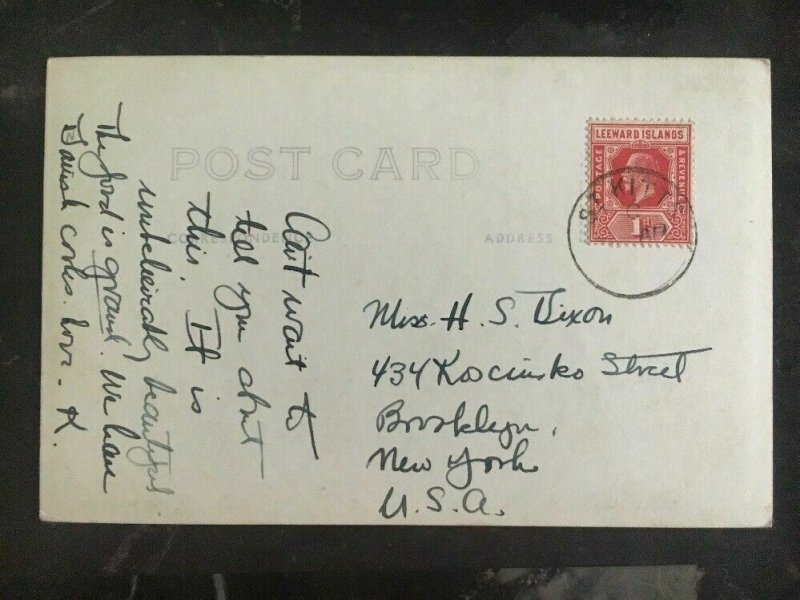 POST CARD
CORRESPONDENCE
ADDRESS
LEEWARD ISLANDS
POSTAGE
& REVENUE
1D
ST KITTS
Can't wait to
tell you about
this. It is
unbelievably beautiful.
The food is grand. We have
Danish cooks. Love - K.
Miss. H. S. Dixon
434 Kosciusko Street
Brooklyn,
New York
U.S.A.